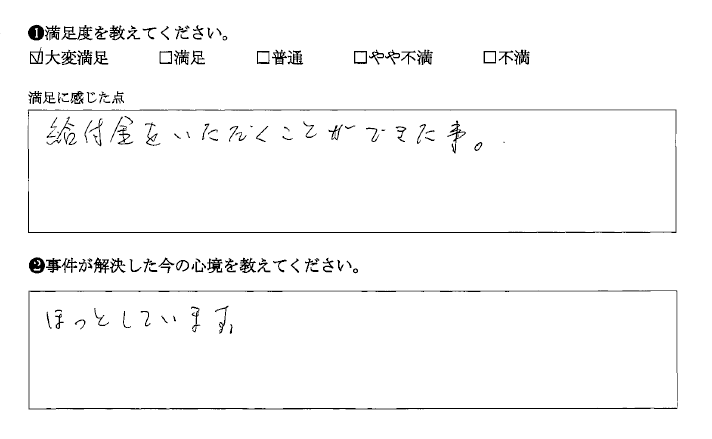 ❶満足度を教えてください。
☑大変満足 ☐満足 ☐普通 ☐やや不満 ☐不満
満足に感じた点
給付金をいただくことができた事。
❷事件が解決した今の心境を教えてください。
ほっとしています。